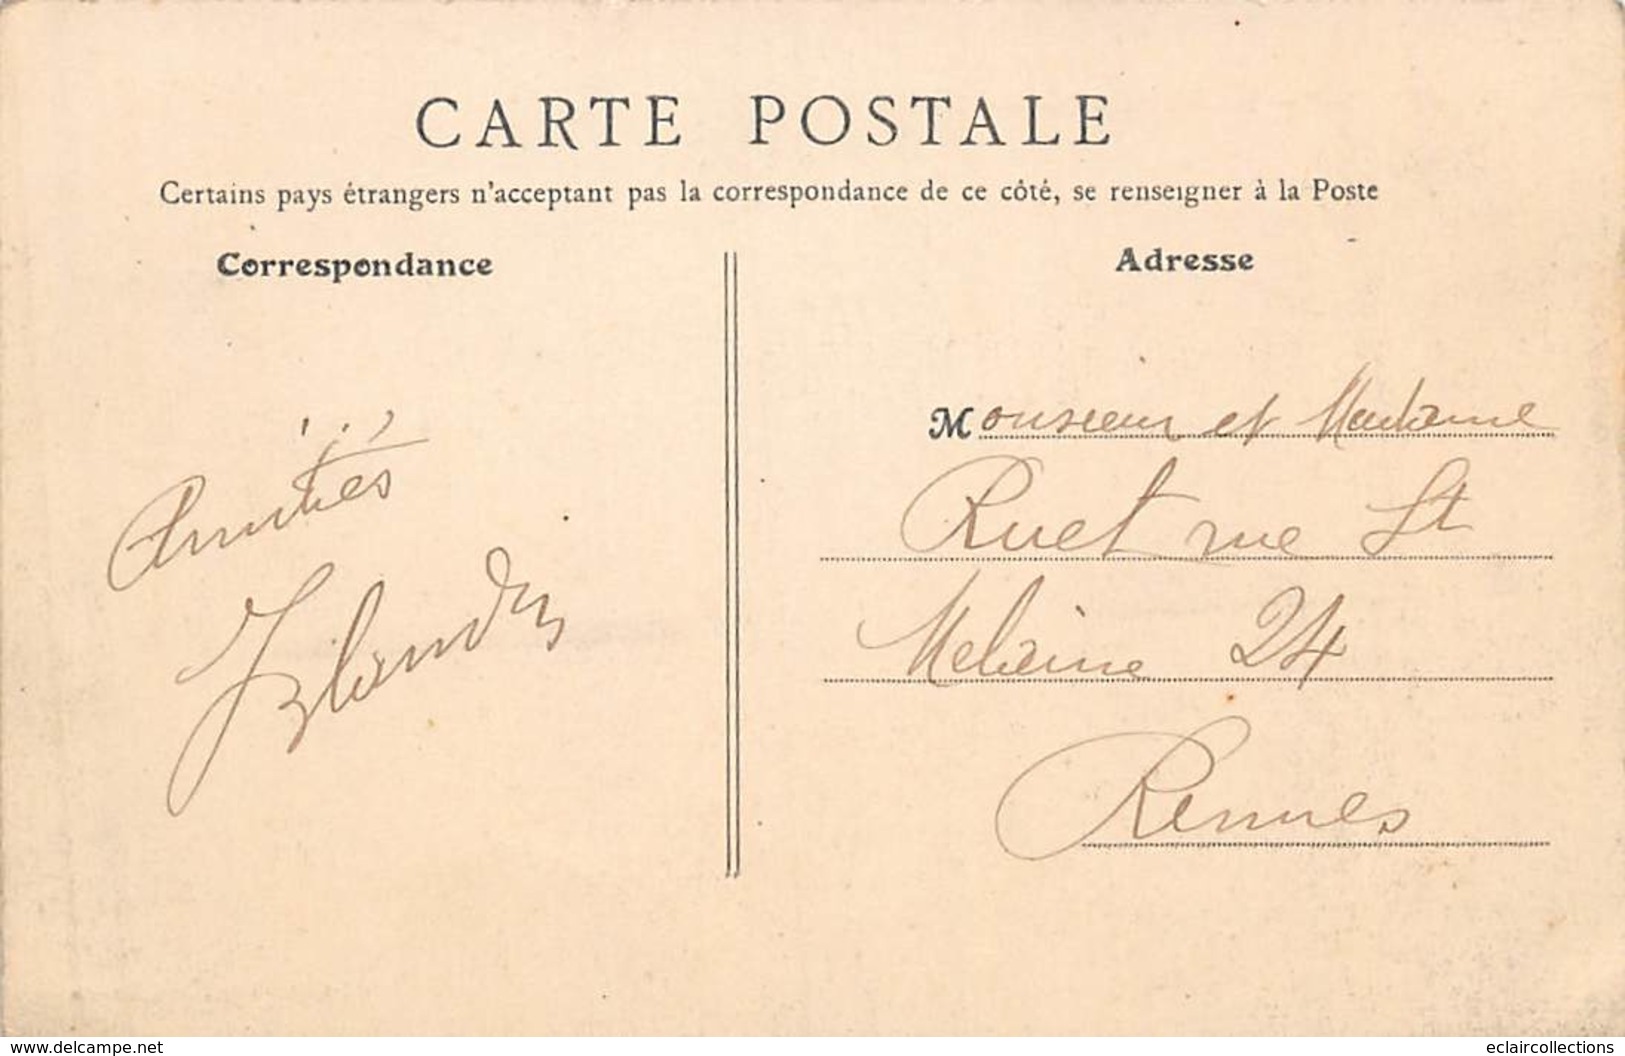 CARTE POSTALE
Certains pays étrangers n'acceptant pas la correspondance de ce côté, se renseigner à la Poste
Correspondance
Adresse
Amitiés
Monsieur et Madame
Ruet rue St
Melaine 24
Rennes
www.delcampe.net
eclaircollections